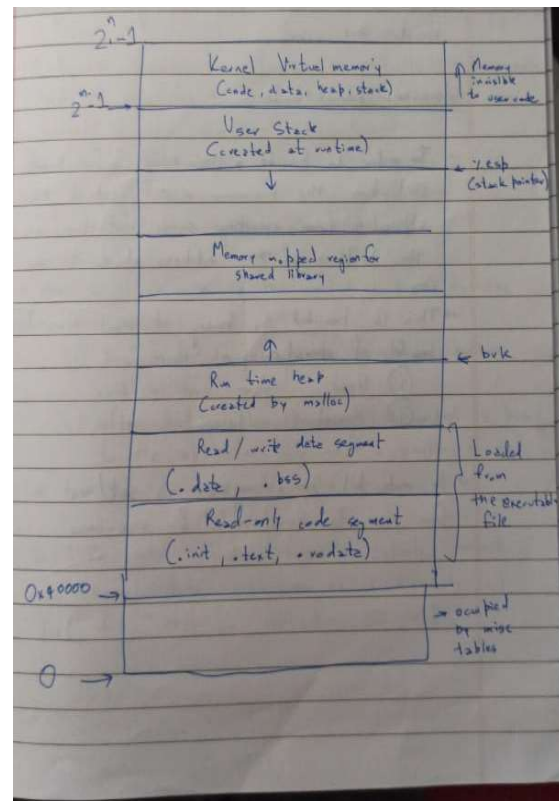 2ⁿ-1
Kernel Virtual memory
(code, data, heap, stack)
↑ Memory
invisible
to user code
2ⁿ-1 →
User Stack
(created at runtime)
← %esp
(stack pointer)
↓
Memory mapped region for
shared library
↑
← brk
Run time heap
(created by malloc)
Read / write data segment
(.data, .bss)
Loaded
from
the executable
file
Read-only code segment
(.init, .text, .rodata)
0x40000 →
→ ocupied
by misc
tables
0 →